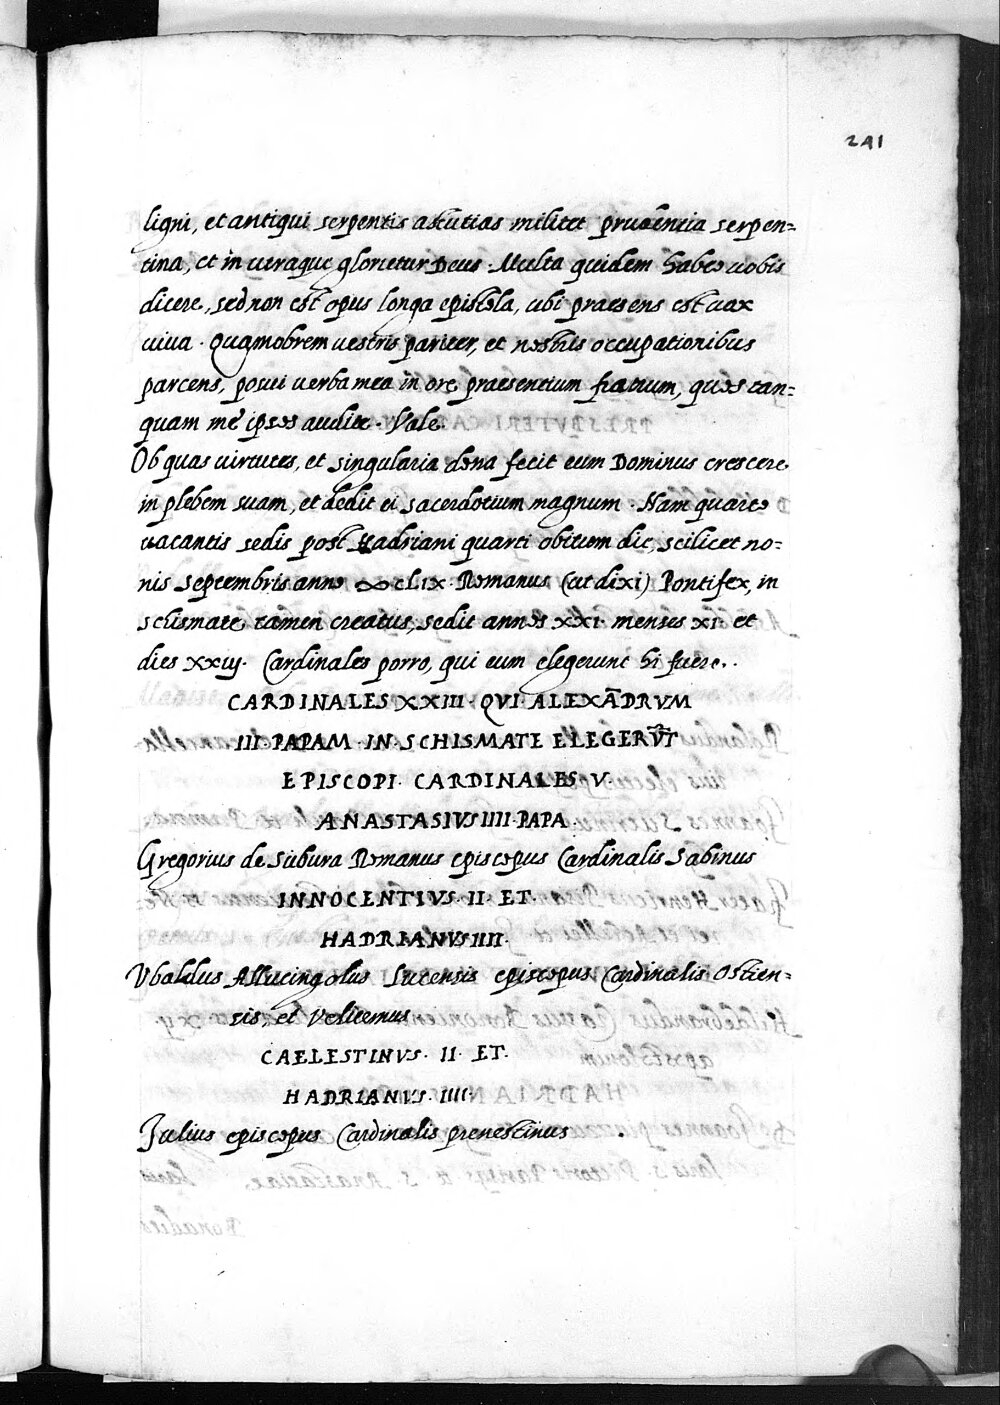 241
ligni, et antiqui serpentis astutias militet prudentia serpen=
tina, et in utraque glorietur Deus. Multa quidem habeo vobis
dicere, sed non est opus longa epistola, ubi praesens est vox
viva. Quamobrem vestris pariter, et nostris occupationibus
parcens, posui verba mea in ore praesentium fratrum, quos tan=
quam me ipsos audite. Vale.
Ob quas virtutes, et singularia dona fecit eum Dominus crescere
in plebem suam, et dedit ei sacerdotium magnum. Nam quarto
vacantis sedis post Hadriani quarti obitum die, scilicet no=
nis septembris anno ∞CLIX. Romanus (ut dixi) Pontifex, in
schismate tamen creatus, sedit annos XXI. menses XI. et
dies XXIIJ. Cardinales porro, qui eum elegerunt hi fuere.
CARDINALES XXIII. QVI. ALEXĀDRVM
III. PAPAM. IN. SCHISMATE ELEGERVT̄
EPISCOPI. CARDINALES. V.
ANASTASIVS IIII. PAPA.
Gregorius de Subura Romanus episcopus Cardinalis Sabinus
INNOCENTIVS. II. ET.
HADRIANVS IIII.
Vbaldus Allucingolus Lucensis episcopus Cardinalis Ostien=
sis, et Veliternus
CAELESTINVS. II. ET.
HADRIANVS. IIII.
Julius episcopus Cardinalis prenestinus